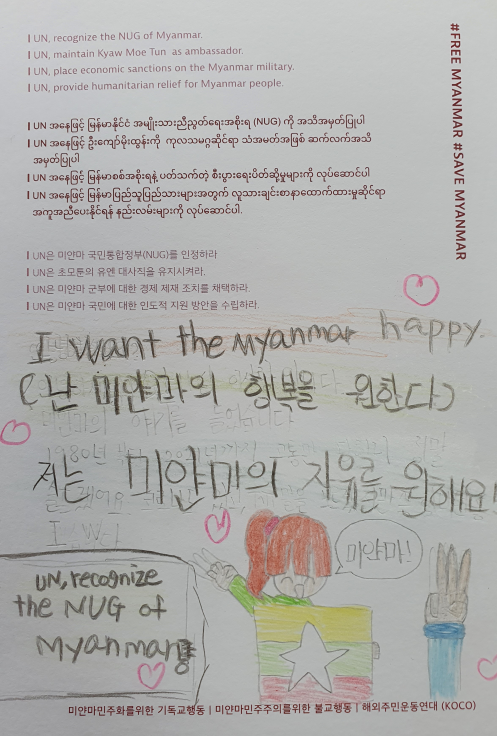 | UN, recognize the NUG of Myanmar.
| UN, maintain Kyaw Moe Tun as ambassador.
| UN, place economic sanctions on the Myanmar military.
| UN, provide humanitarian relief for Myanmar people.
#FREE MYANMAR #SAVE MYANMAR
| UN အနေဖြင့် မြန်မာနိုင်ငံ အမျိုးသားညီညွတ်ရေးအစိုးရ (NUG) ကို အသိအမှတ်ပြုပါ
| UN အနေဖြင့် ဦးကျော်မိုးထွန်းကို ကုလသမဂ္ဂဆိုင်ရာ သံအမတ်အဖြစ် ဆက်လက်အသိ
အမှတ်ပြုပါ
| UN အနေဖြင့် မြန်မာစစ်အစိုးရနဲ့ ပတ်သက်တဲ့ စီးပွားရေးပိတ်ဆို့မှုများကို လုပ်ဆောင်ပါ
| UN အနေဖြင့် မြန်မာပြည်သူပြည်သားများအတွက် လူသားချင်းစာနာထောက်ထားမှုဆိုင်ရာ
အကူအညီပေးနိုင်ရန် နည်းလမ်းများကို လုပ်ဆောင်ပါ.
| UN은 미얀마 국민통합정부(NUG)를 인정하라
| UN은 초모툰의 유엔 대사직을 유지시켜라.
| UN은 미얀마 군부에 대한 경제 제재 조치를 채택하라.
| UN은 미얀마 국민에 대한 인도적 지원 방안을 수립하라.
I want the Myanmar happy.
(난 미얀마의 행복을 원한다)
저는 미얀마의 자유를 원해요!
미얀마!
UN, recognize
the NUG of
Myanmar
미얀마민주화를위한 기독교행동 | 미얀마민주주의를위한 불교행동 | 해외주민운동연대 (KOCO)